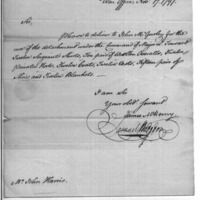 War Office, Nov. 17. 1797.
Sir,
Please to deliver to John McCauley for the
use of the detachment under the command of Major
Twelve Sergeants Shirts, Ten pair of Woollen Overalls, Twelve
privates Vests, Twelve Coats, Twelve Hats, Fifteen pair of
Shoes and Twelve Blankets.
I am Sir
Your obed. Servant
James McHenry
Samuel Hodgdon
Mr. John Harris.